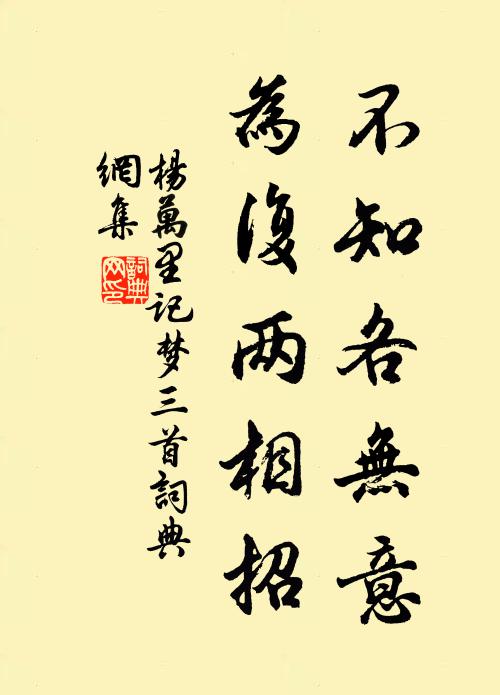 不知各無意
為復兩相招
楊萬里記梦三首詞典
網集
詞典
网印